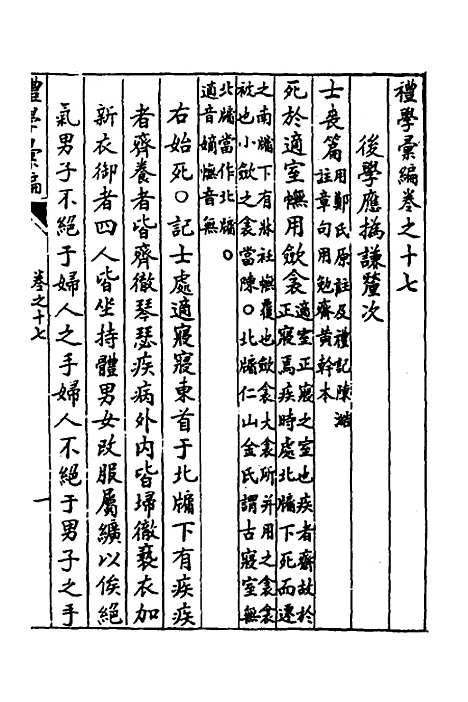 禮學彙編卷之十七
後學應撝謙釐次
士喪篇用鄭氏原註及禮記陳澔註章句用勉齋黃幹本
死於適室幠用斂衾適室正寢之室也疾者齋故於正寢焉疾時處北牖下死而遷
之南牖下有牀衽幠覆也斂衾大衾所并用之衾衾被也小斂之衾當陳○北牖仁山金氏謂古寢室無
北牖當作北墉○適音嫡幠音無
右始死○記士處適寢寢東首于北牖下有疾疾
者齊養者皆齊徹琴瑟疾病外內皆埽徹褻衣加
新衣御者四人皆坐持體男女改服屬纊以俟絕
氣男子不絕于婦人之手婦人不絕于男子之手
禮學彙編
卷之十七
一